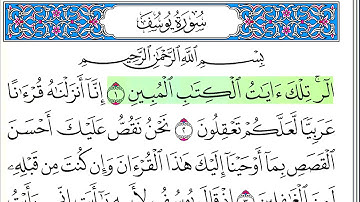 سُورَةُ يُوسُفَ
بِسْمِ ٱللَّهِ ٱلرَّحْمَٰنِ ٱلرَّحِيمِ
الٓر ۚ تِلْكَ ءَايَٰتُ ٱلْكِتَٰبِ ٱلْمُبِينِ ١ إِنَّآ أَنزَلْنَٰهُ قُرْءَٰنًا
عَرَبِيًّا لَّعَلَّكُمْ تَعْقِلُونَ ٢ نَحْنُ نَقُصُّ عَلَيْكَ أَحْسَنَ
ٱلْقَصَصِ بِمَآ أَوْحَيْنَآ إِلَيْكَ هَٰذَا ٱلْقُرْءَانَ وَإِن كُنتَ مِن قَبْلِهِۦ
لَمِنَ ٱلْغَٰفِلِينَ ٣ إِذْ قَالَ يُوسُفُ لِأَبِيهِ يَٰٓأَبَتِ إِنِّى رَأَيْتُ